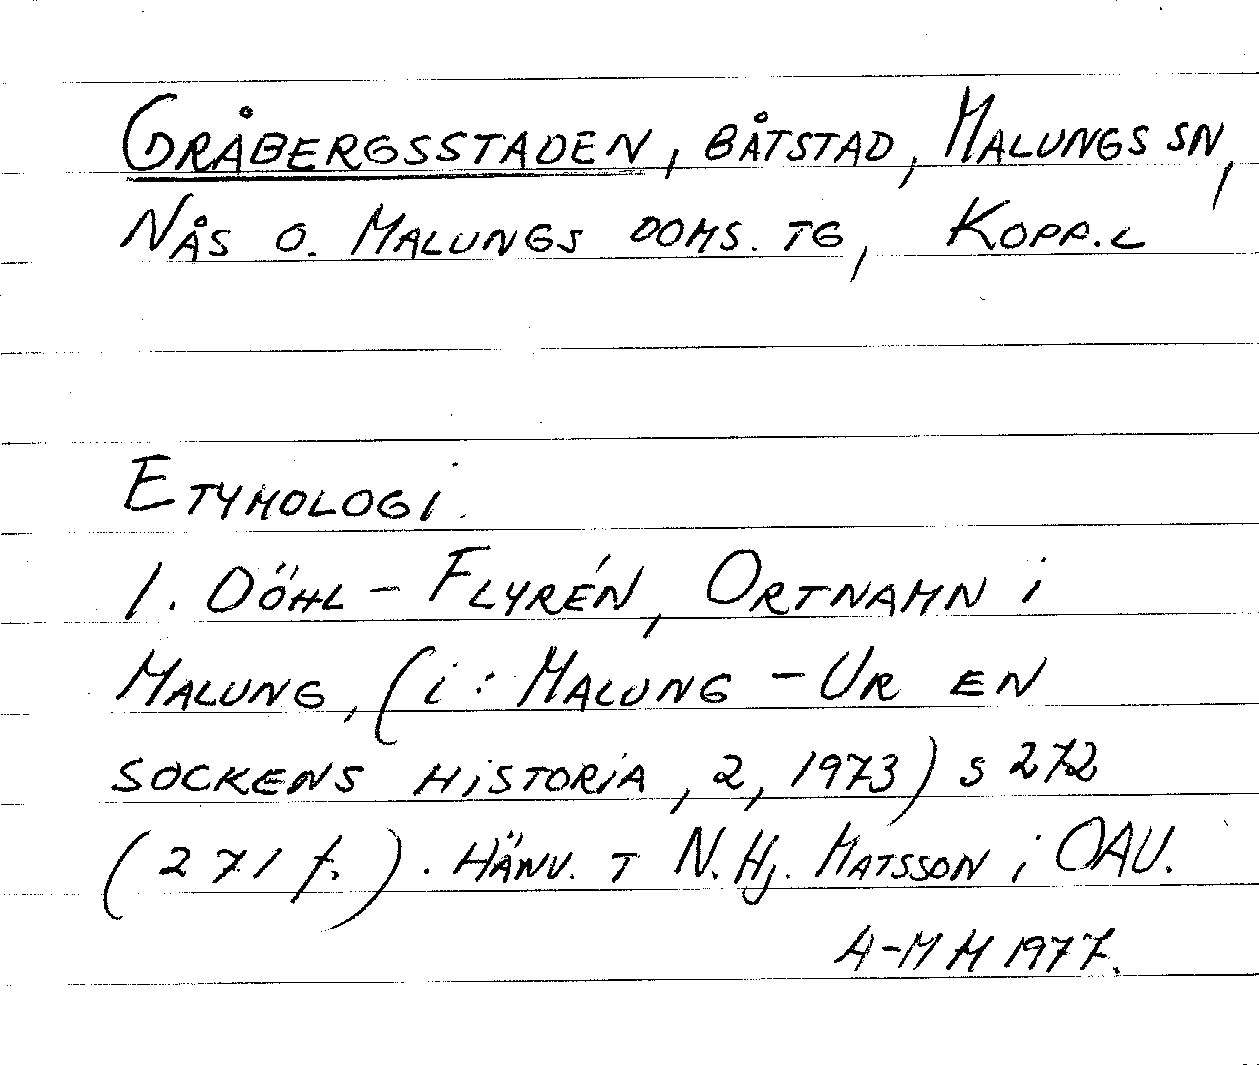 GRÅBERGSSTADEN, BÅTSTAD, MALUNGS SN,
NÅS O. MALUNGS DOMS. TG, KOPP. L
ETYMOLOGI.
1. DÖHL - FLYRÉN, ORTNAMN i
MALUNG, (i: MALUNG - UR EN
SOCKENS HISTORIA, 2, 1973) S 272
(271 f.). HÄNV. T N. Hj. MATSSON i OAU.
A-MH 1977.